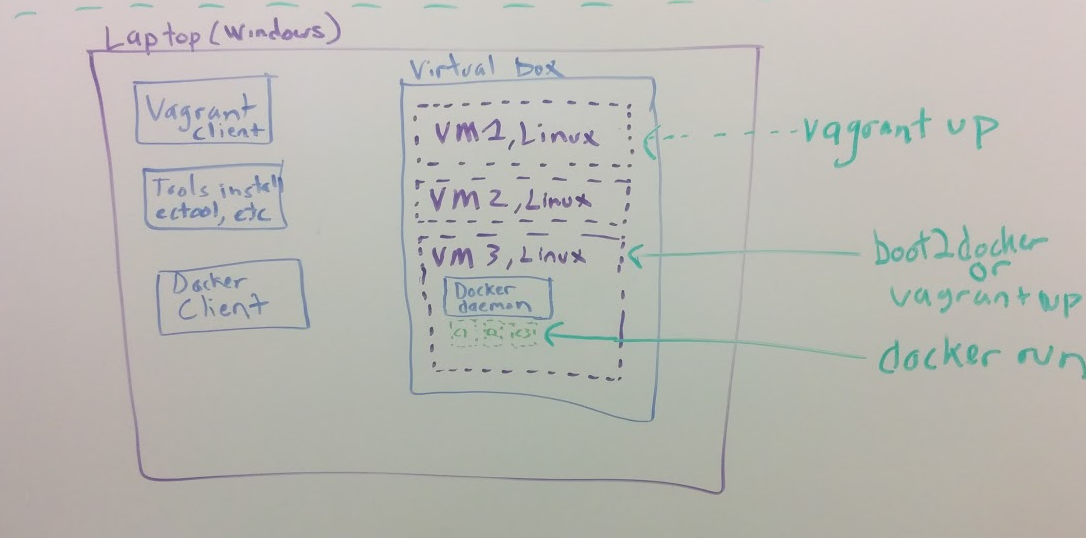 Laptop (Windows)
Virtual box
Vagrant
client
Tools install
ectool, etc
Docker
Client
VM 1, Linux
VM 2, Linux
VM 3, Linux
Docker
daemon
C1
C3
vagrant up
boot2docker
or
vagrant up
docker run